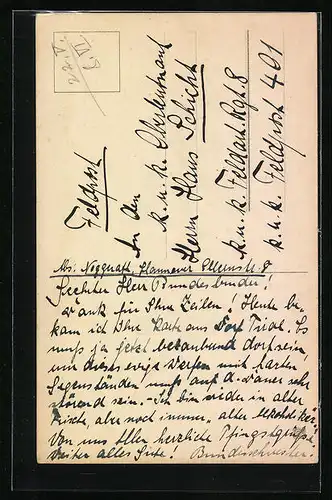 27. V.
6. VI.
Feldpost
An den
k. u. k. Oberleutnant
Herrn Hans Schicht
k. u. k. Feldart. Rgt. 8
k. u. k. Feldpost 401
Abs: Hannover
Geehrter Herr Bundesbruder!
Dank für Ihre Zeilen! Heute be-
kam ich Ihre Karte aus Tirol. Es
muß ja jetzt betaubend dort sein,
um dieses ewige Werfen mit harten
Gegenständen muß auf d. Dauer sehr
störend sein. - Ich bin wieder in alter
Frische, aber noch immer
Von uns Allen herzliche Pfingstgrüsse,
weiter alles Gute! Bundesschwester.